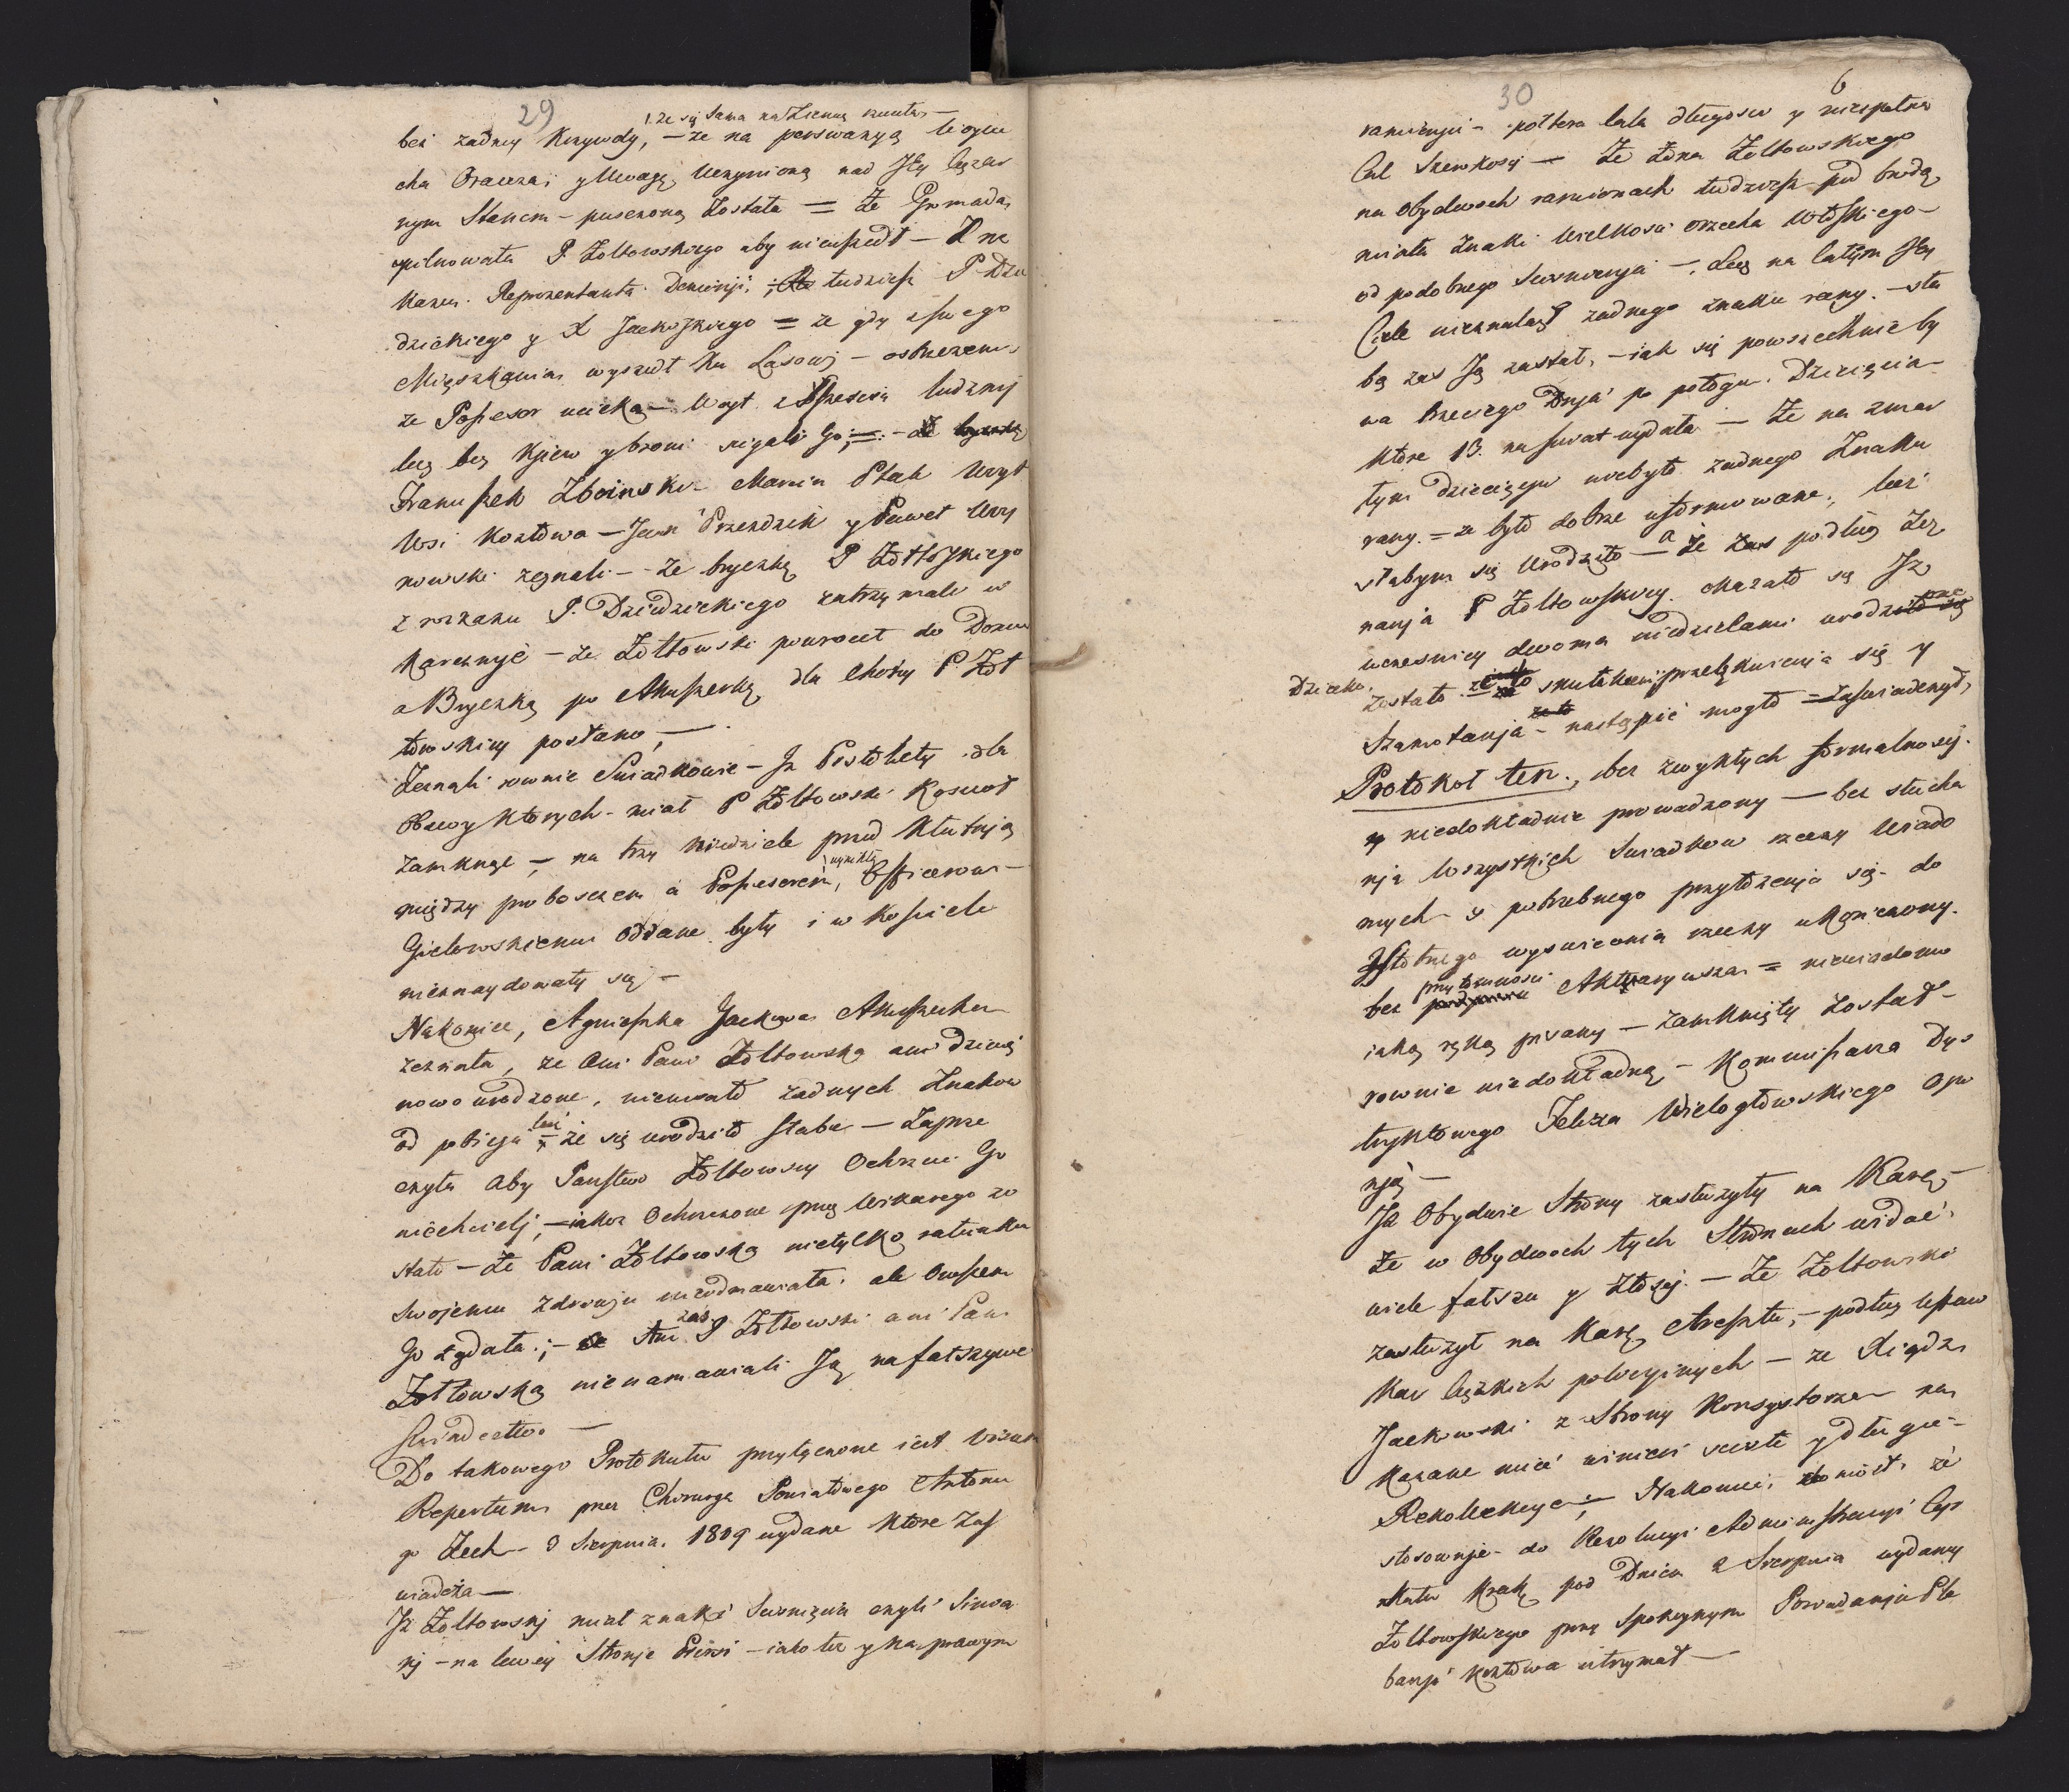 29
\ Ze się sama na Ziemię rzuciła —
bez żadney Krzywdy, — że na perswazyą Woycie
cha Oracza, y Uwagę, Uczynioną nad Jey Ciężar
nym Stanem — puszczoną Została = Że Gromada,
pilnowała P. Zołtowskiego aby nieuszedł — Z na
kazu Reprezentanta Dominji, tudzież P Dzie
dzickiego y X Jackowskiego = że gdy z swego
Mięszkania wyszedł Ku Lasowi — ostrzezem
że Possesor ucieka — Woyt z Trzesią ludzmi
lecz bez Kijow y broni scigali Go; =
Franciszek Zboinski — Marcin Ptak Woyt
Wsi Kozłowa — Jan Przezdzik y Paweł Wuy
nowski zeznali — Że bryczkę P Zołtowskiego
z rozkazu P. Dziedzickiego zatrzymali w
Karczmie — Że Zołtowski powrocił do Domu
a Bryczką po Akuszerkę dla Chorey P. Zoł
towskiey posłano, —
Zeznali rownie Swiadkowie — Iz Pistolety dla
Obawy ktorych miał P Zołtowski Kosciół
zamknąć — na trzy Niedziele przed Kłutnią
między proboszczem a Possesorem, \wynikłą Officerowi —
Gielewskiemu oddane były i w Kościele
nieznaydowały się —
Nakoniec, Agnieszka Jackowa Akuszerka
zeznała, że Ani Pani Zołtowska ani dziecię
nowo urodzone, niemiało żadnych Znakow
od pobicia lecz że się urodziło słabe — Zaprze
czyła aby Państwo Zołtowscy Ochrzcić Go
niechcieli, — iakoż Ochrzczone przez Wikarego zo
stało — Że Pani Zołtowska nietylko ratunku
Swojemu Zdrowiu nieodmawiała ale Owszem
Go żądała; — Ani zaś P Zołtowski ani Pani
Zołtowska nienamawiali Ją na fałszywe
Swiadectwo —
Do takowego Protokułu przyłączone iest Visum
Repertum przez Chirurga Powiatowego Antonie
go Zech — 3 Sierpnia 1809 wydane Które Zas
wiadcza —
Iż Zołtowskj miał znaki Scisnięcia czyli Sinoa
nj — na lewey Stronie Piersi — iako też y na prawym
30
6
ramieniu — połtora cala długosci y niespełna
Cal Szerokosci — Że Żona Zołtowskiego
na obydwoch ramionach tudzież pod brodą,
miała Znaki Wielkosci orzecha Włoskiego —
od podobnego Scisnienia —, Lecz na całym Jey
Ciele nieznalazł żadnego znaku rany. — sła
bą zas Ją zastał, — iak się powszechnie by
wa trzeciego Dnia po połogu. Dziecięcia —
które 13. na swiat wydała — Że na zmar
tym dziecięciu niebyło żadnego Znaku
rany. = że było dobrze uformowane, lecz
słabym się Urodziło — a Że zas podług Zez
nania P Zołtowskiey okazało się Iz
wczesniey dwoma niedzielami urodzone
Dziecko.
zostało — skutkiem przelęknienia się y
Szamotania — nastąpić mogło = Zaswiadczył,
Protokoł ten, bez zwykłych formalnosci
y niedokładnie prowadzony — bez słucha
nia Wszystkich Swiadkow rzeczy Wiado
mych y potrzebnego przyłożenia się do
Istotnego wyswiecenia rzeczy ukończony
bez przytomnosci Aktuaryusza = niewiadomo
iaką ręką pisany — zamknięty Został —
rownie niedokładną — Kommissarza Dys
tryktowego Felixa Wielogłowskiego Opi
nją —
Iż Obydwie Strony zasłużyły na Karę —
Że w Obydwoch tych Stronach widać
wiele fałszu y Złości. — Że Zołtowski
zasłużył na Karę Aresztu, — podług Ustaw
Kar Ciężkich policyinych — że Xiądz
Jackowski z Strony Konsystorza na
kazane mieć winien scisłe y długie —
Rekollekcye; — Nakoniec, doniosł, że
stosownie do Rezolucyi Administracyi Cyr
kułu Krak: pod Dniem 2 Sierpnia wydaney
Zołtowskiego przy Spokoynym Posiadaniu Ple
banji Kozłowa utrzymał —